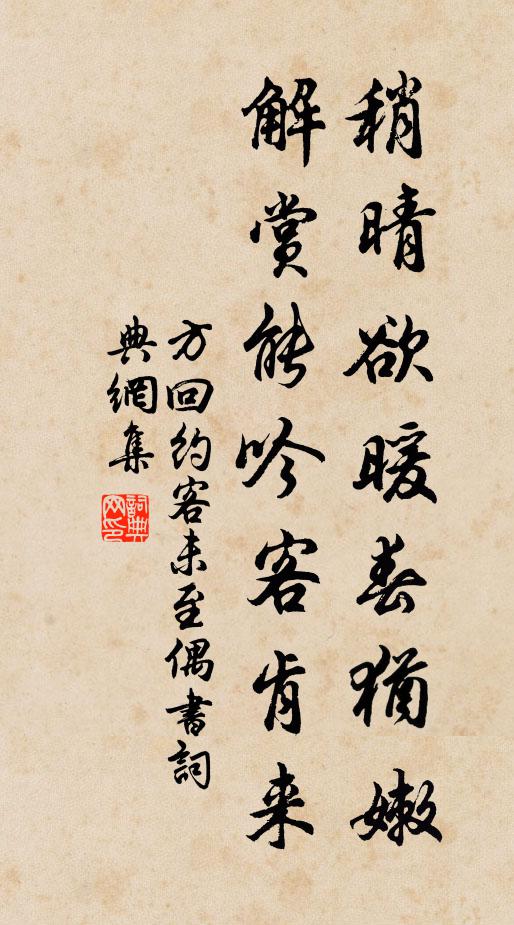 稍晴欲暖春犹嫩
解赏能吟客肯来
方回约客未至偶書詞
典網集
詞典網印